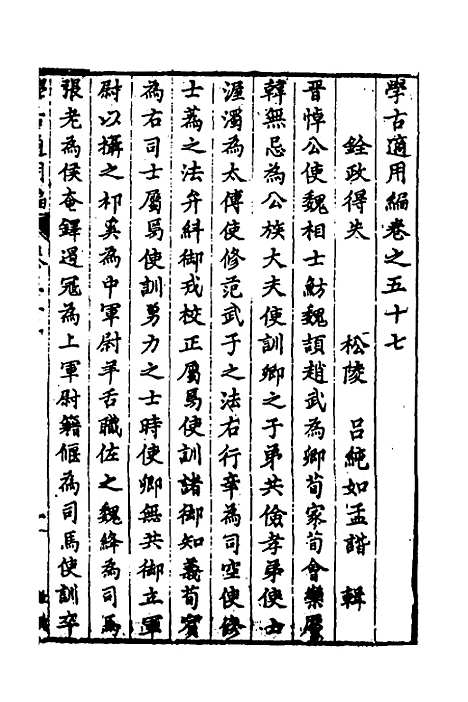 學古適用編卷之五十七
銓政得失　松陵　呂純如孟諧　輯
晉悼公使魏相士魴魏頡趙武為卿荀家荀會欒黶
韓無忌為公族大夫使訓卿之子弟共儉孝弟使士
渥濁為太傅使修范武子之法右行辛為司空使修
士蒍之法弁糾御戎校正屬焉使訓諸御知義荀賓
為右司士屬焉使訓勇力之士時使卿無共御立軍
尉以攝之祁奚為中軍尉羊舌職佐之魏絳為司馬
張老為侯奄鐸遏冦為上軍尉籍偃為司馬使訓卒
學古適用編